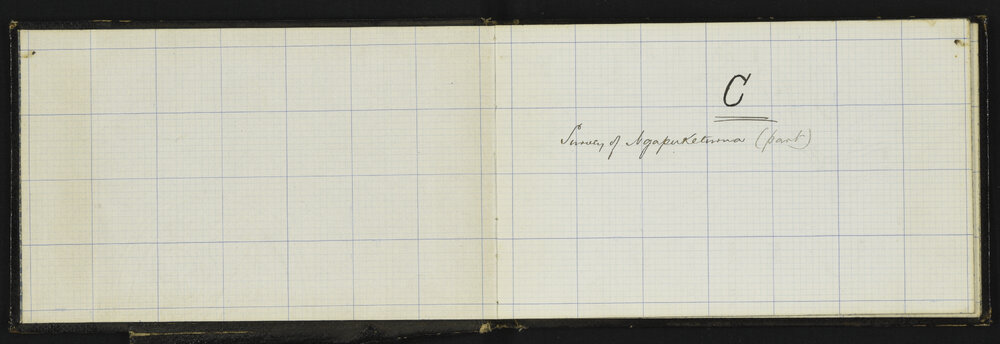 C
Survey of Ngapuketurua (part)